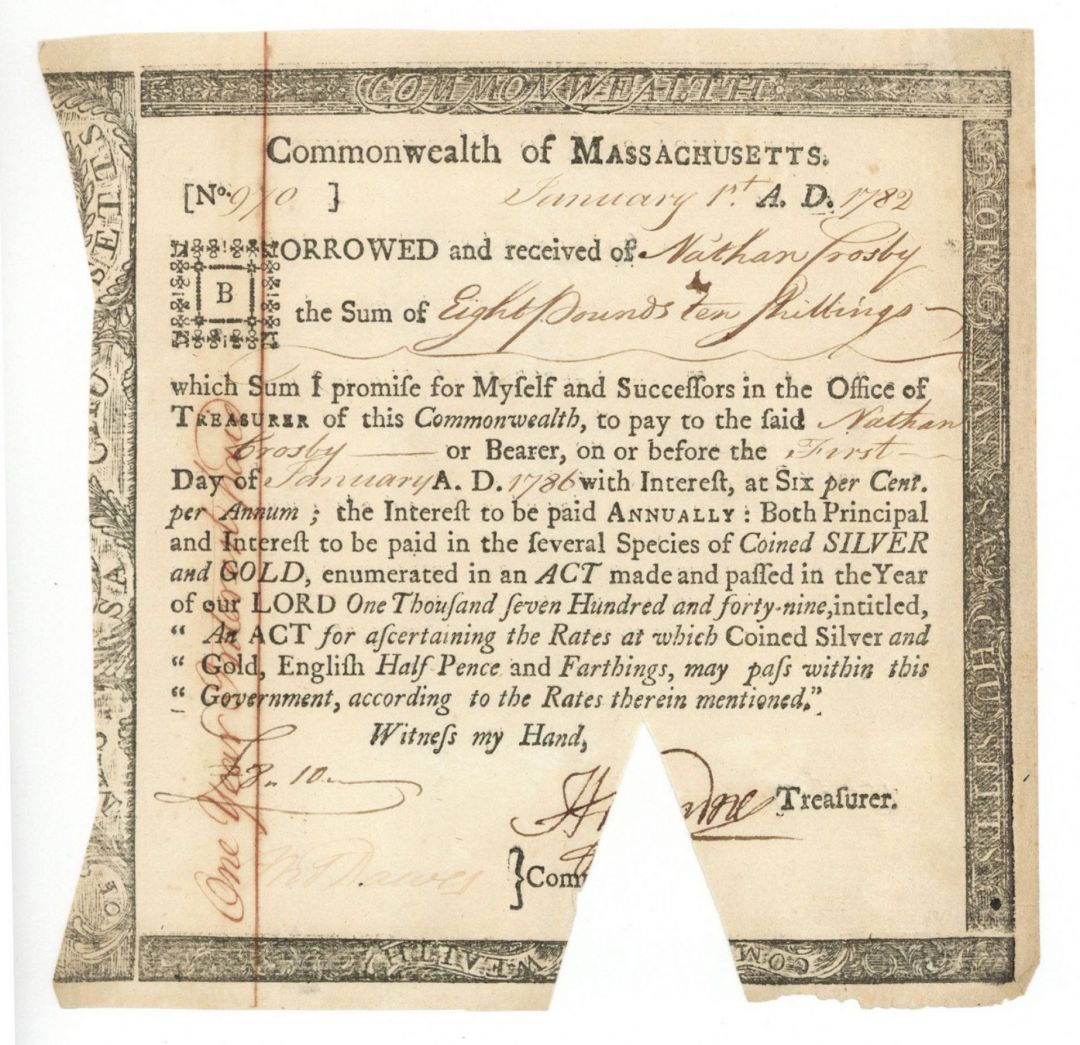 COMMONWEALTH
Commonwealth of MASSACHUSETTS.
[No. 970 ] January 1st A. D. 1782
BORROWED and received of Nathan Crosby
the Sum of Eight Pounds Ten Shillings
which Sum I promiſe for Myſelf and Succeſſors in the Office of
TREASURER of this Commonwealth, to pay to the ſaid Nathan
Crosby — or Bearer, on or before the First —
Day of January A. D. 1786 with Intereſt, at SIX per Cent.
per Annum ; the Intereſt to be paid ANNUALLY : Both Principal
and Intereſt to be paid in the ſeveral Species of Coined SILVER
and GOLD, enumerated in an ACT made and paſſed in the Year
of our LORD One Thouſand ſeven Hundred and forty-nine, intitled,
“ An ACT for aſcertaining the Rates at which Coined Silver and
“ Gold, Engliſh Half-Pence and Farthings, may paſs within this
“ Government, according to the Rates therein mentioned.”
Witneſs my Hand,
8 " 10
H dner Treaſurer.
Dawes } Com
One Year
MASSACHUSETTS
COM WEALTH